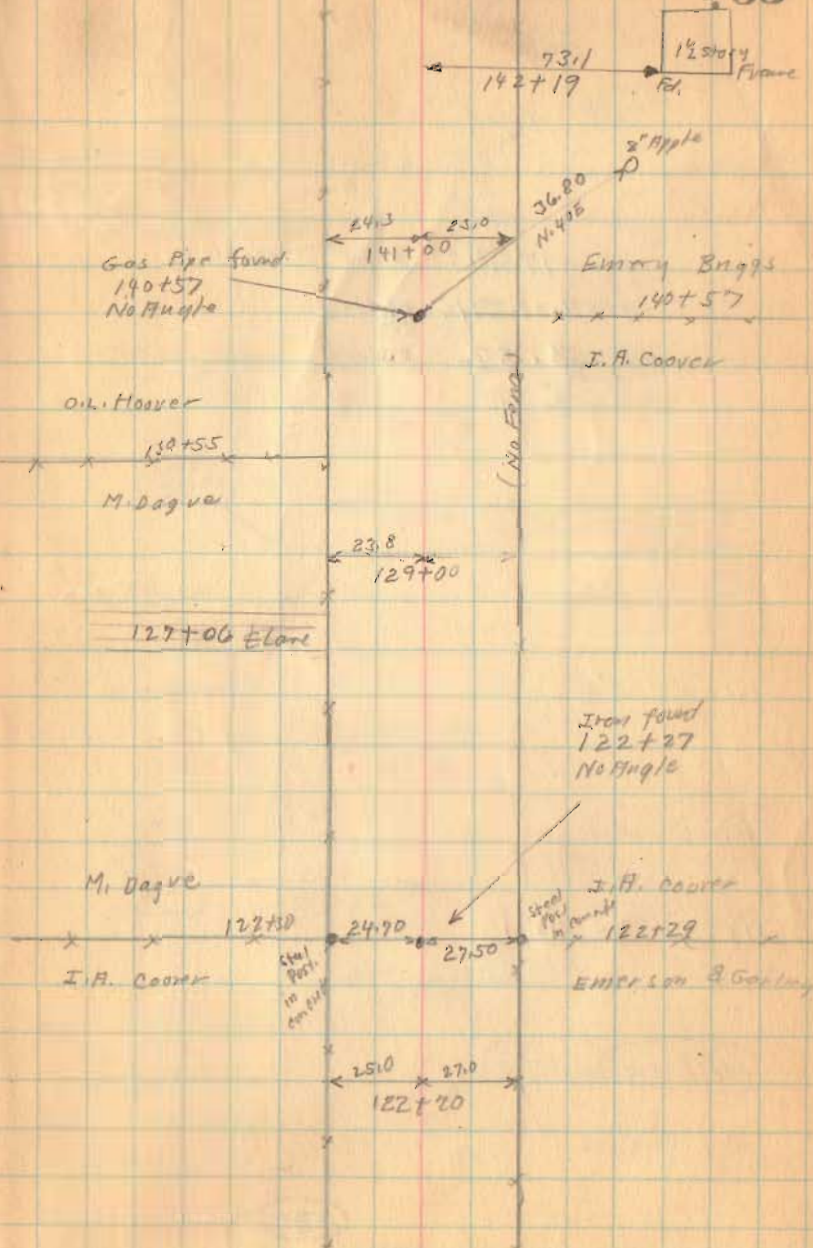 73.1
142+19
1½ Story
Frame
Fd.
8" Apple
36.80
N.40E
24.3 23.0
141+00
Gas Pipe found
140+57
No Angle
Emery Briggs
140+57
I.A. Coover
O.L. Hoover
+55
M. Dague
(No Fence)
23.8
129+00
127+06 Lane
Iron found
122+27
No Angle
M. Dague
122+30
I.A. Coover
Steel
Post
in
concrete
24.70
27.50
Steel
Post
in concrete
I.A. Coover
122+29
Emerson &
25.0 27.0
122+20